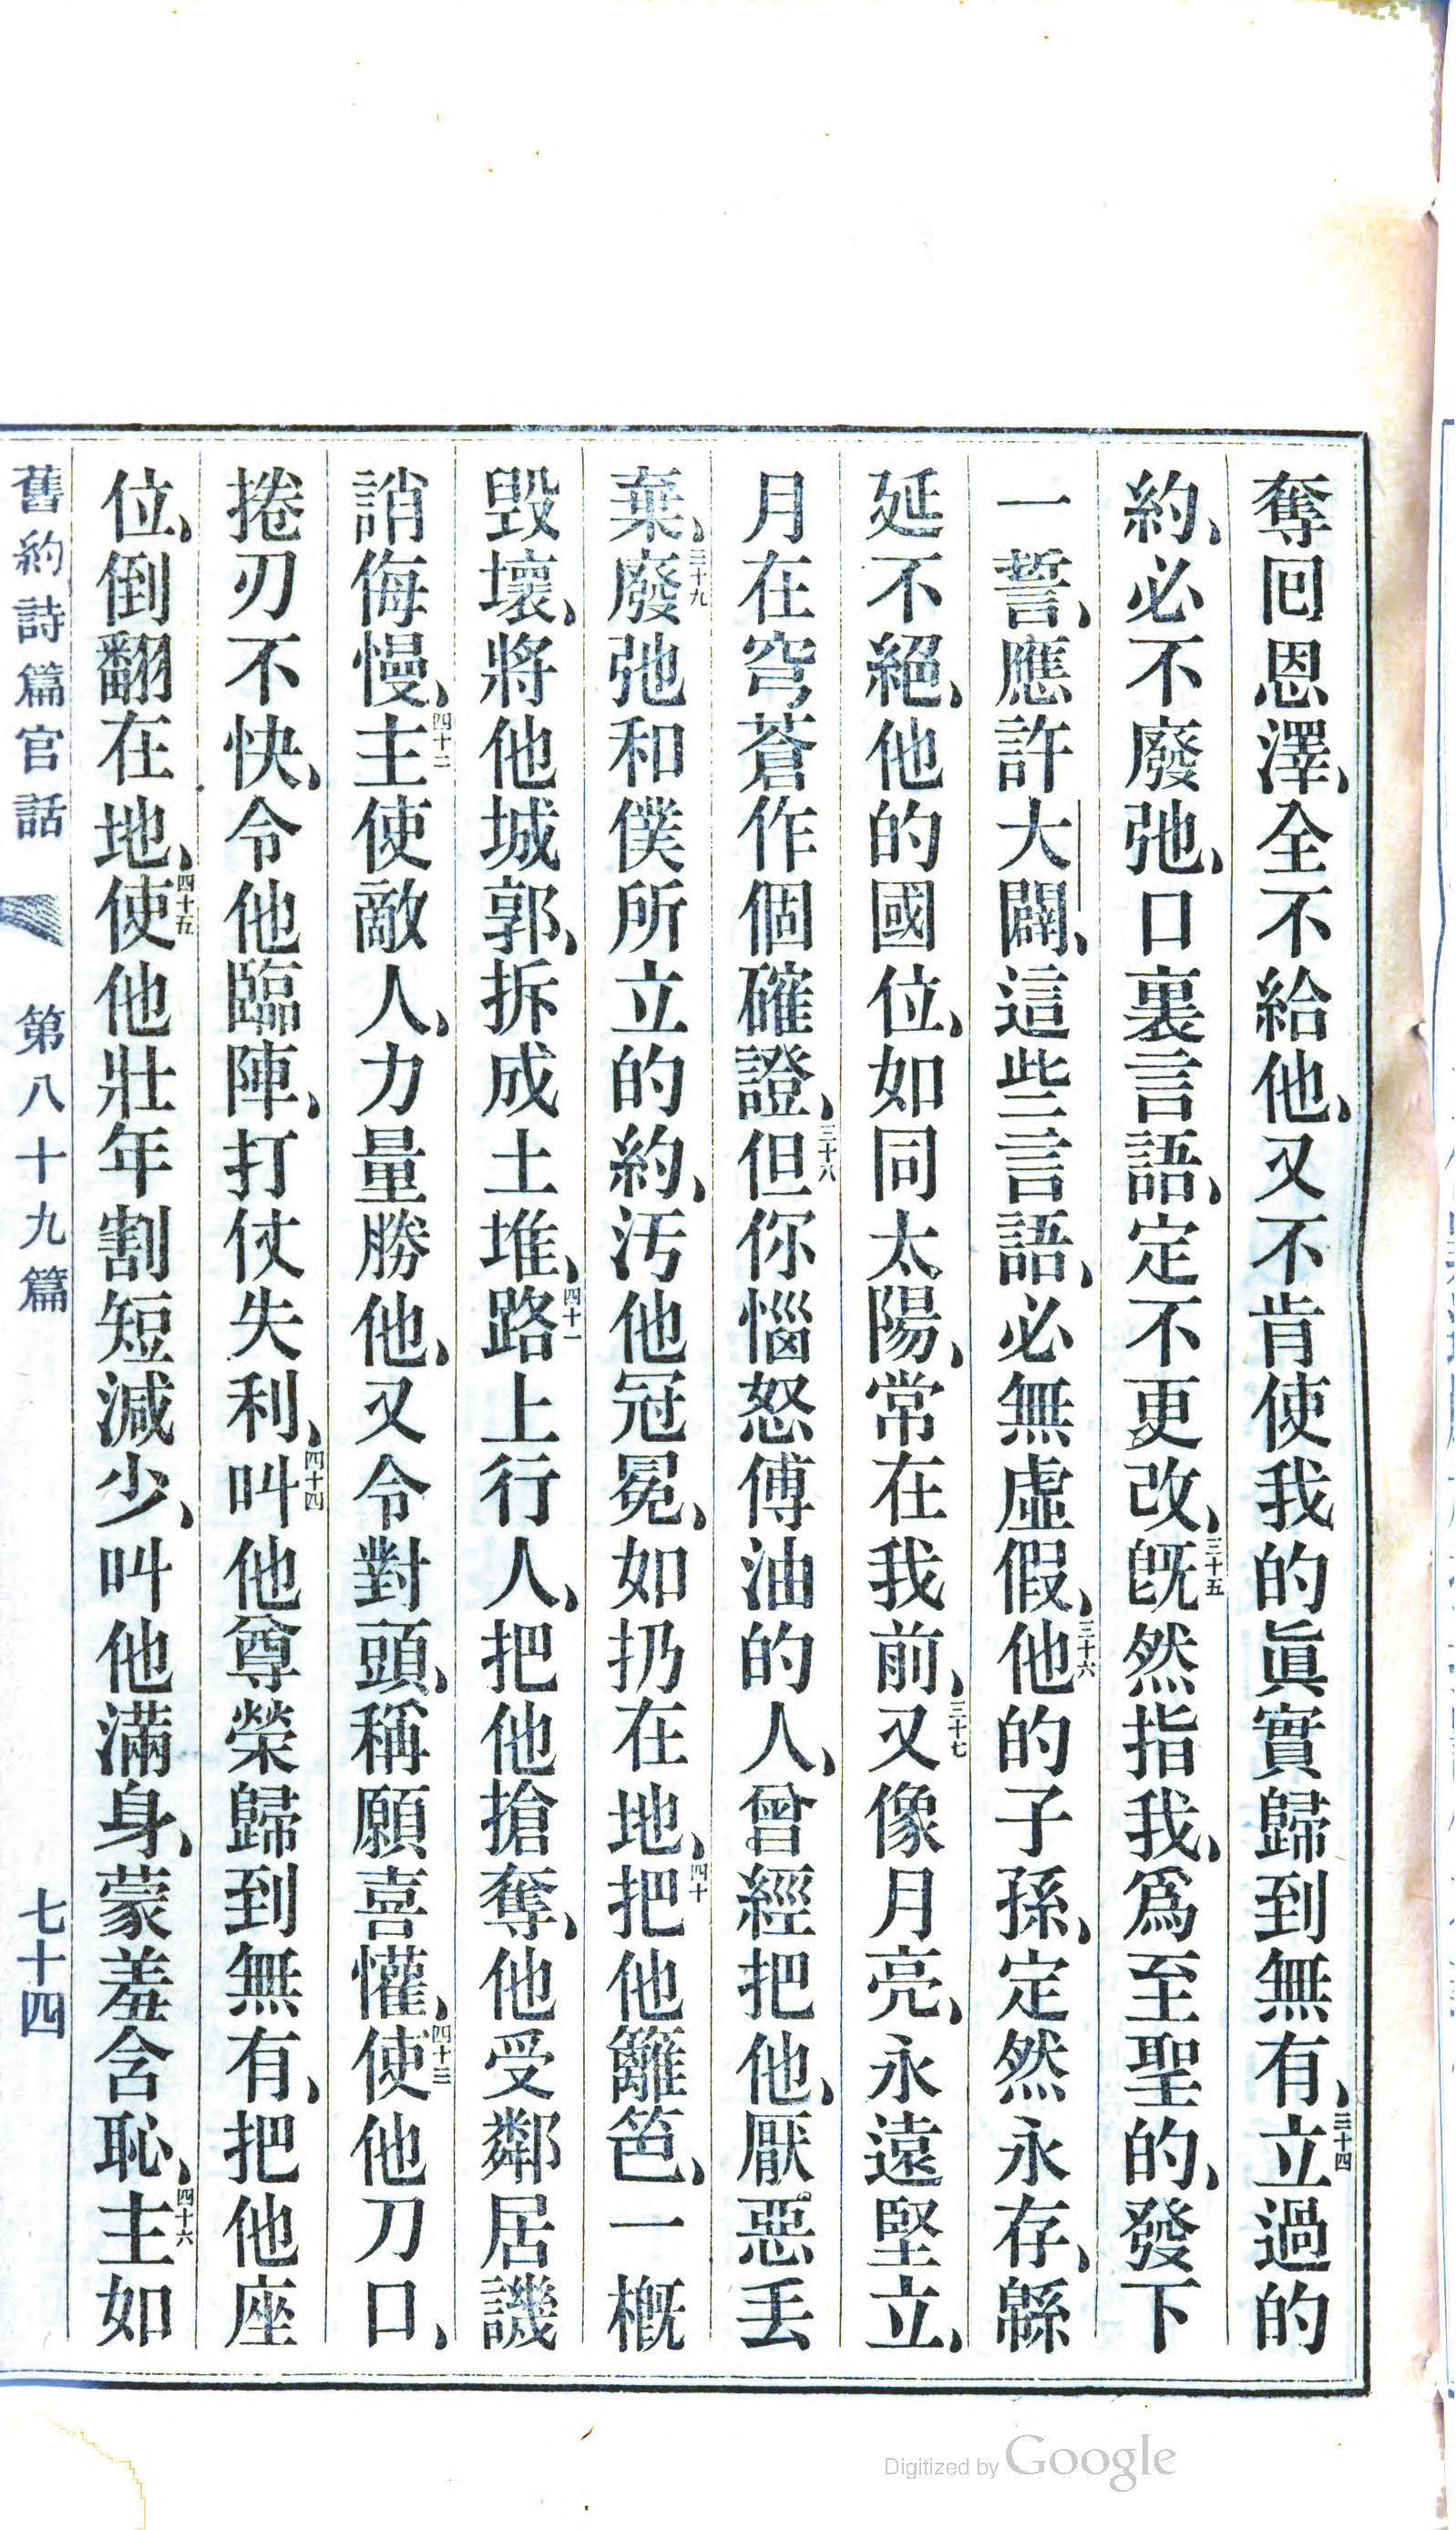 奪回恩澤、全不給他、又不肯使我的眞實歸到無有、三十四立過的
約、必不廢弛、口裏言語、定不更改、三十五旣然指我、爲至聖的、發下
一誓、應許大闢、這些言語、必無虛假、三十六他的子孫、定然永存、緜
延不絕、他的國位、如同太陽、常在我前、三十七又像月亮、永遠堅立、
月在穹蒼作個確證、三十八但你惱怒傅油的人、曾經把他、厭惡丟
棄、三十九廢弛和僕所立的約、汚他冠冕、如扔在地、四十把他籬笆、一槪
毀壞、將他城郭、拆成土堆、四十一路上行人、把他搶奪、他受鄰居譏
誚侮慢、四十二主使敵人、力量勝他、又令對頭、稱願喜懽、四十三使他刀口、
捲刃不快、令他臨陣、打仗失利、四十四叫他尊榮歸到無有、把他座
位、倒翻在地、四十五使他壯年割短減少、叫他滿身、蒙羞含恥、四十六主如
舊約詩篇官話 第八十九篇 七十四
Digitized by Google